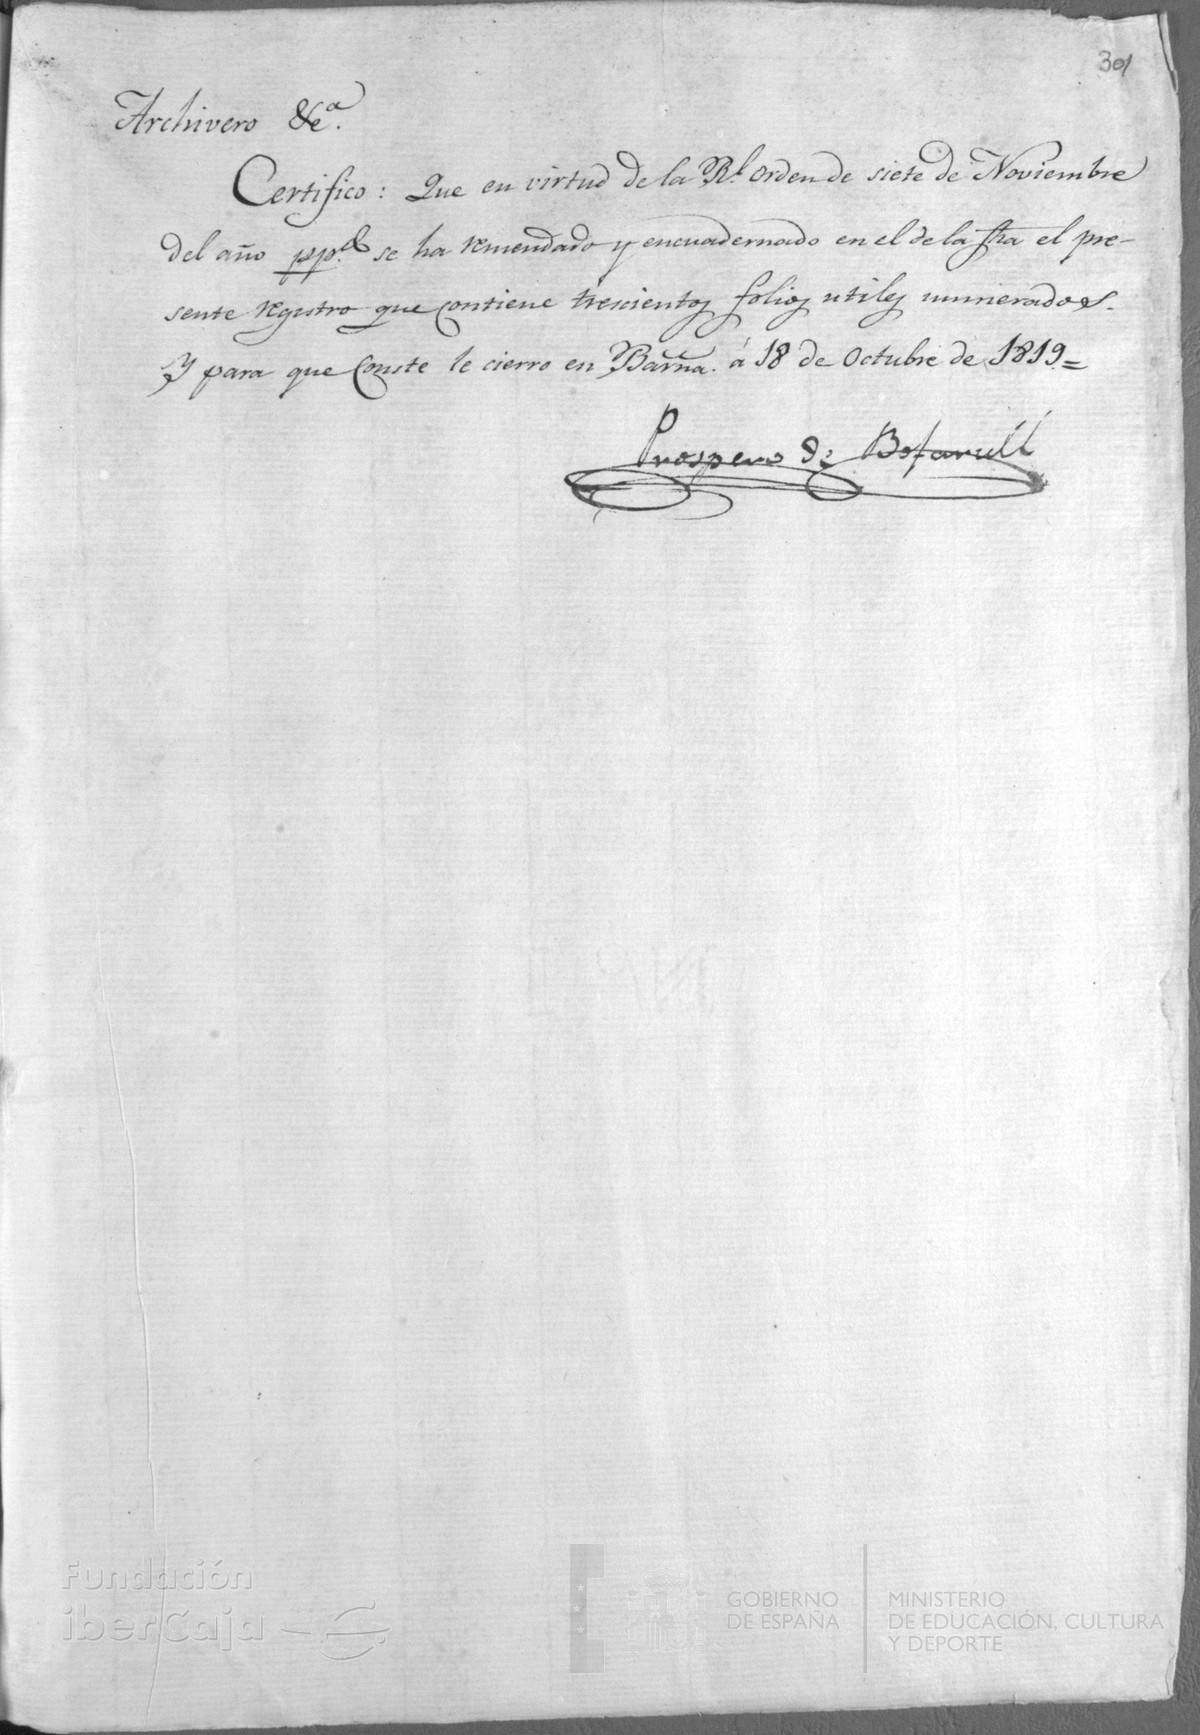 301
Archivero &c.ª
Certifico: Que en virtud de la R.l orden de siete de Noviembre
del año pp.do se ha remendado y encuadernado en el de la fha el pre-
sente registro que contiene trescientos folios utiles numerados.
Y para que conste le cierro en Barña. á 18 de Octubre de 1819=
Prospero de Bofarull
Fundación
iberCaja
GOBIERNO
DE ESPAÑA
MINISTERIO
DE EDUCACIÓN, CULTURA
Y DEPORTE